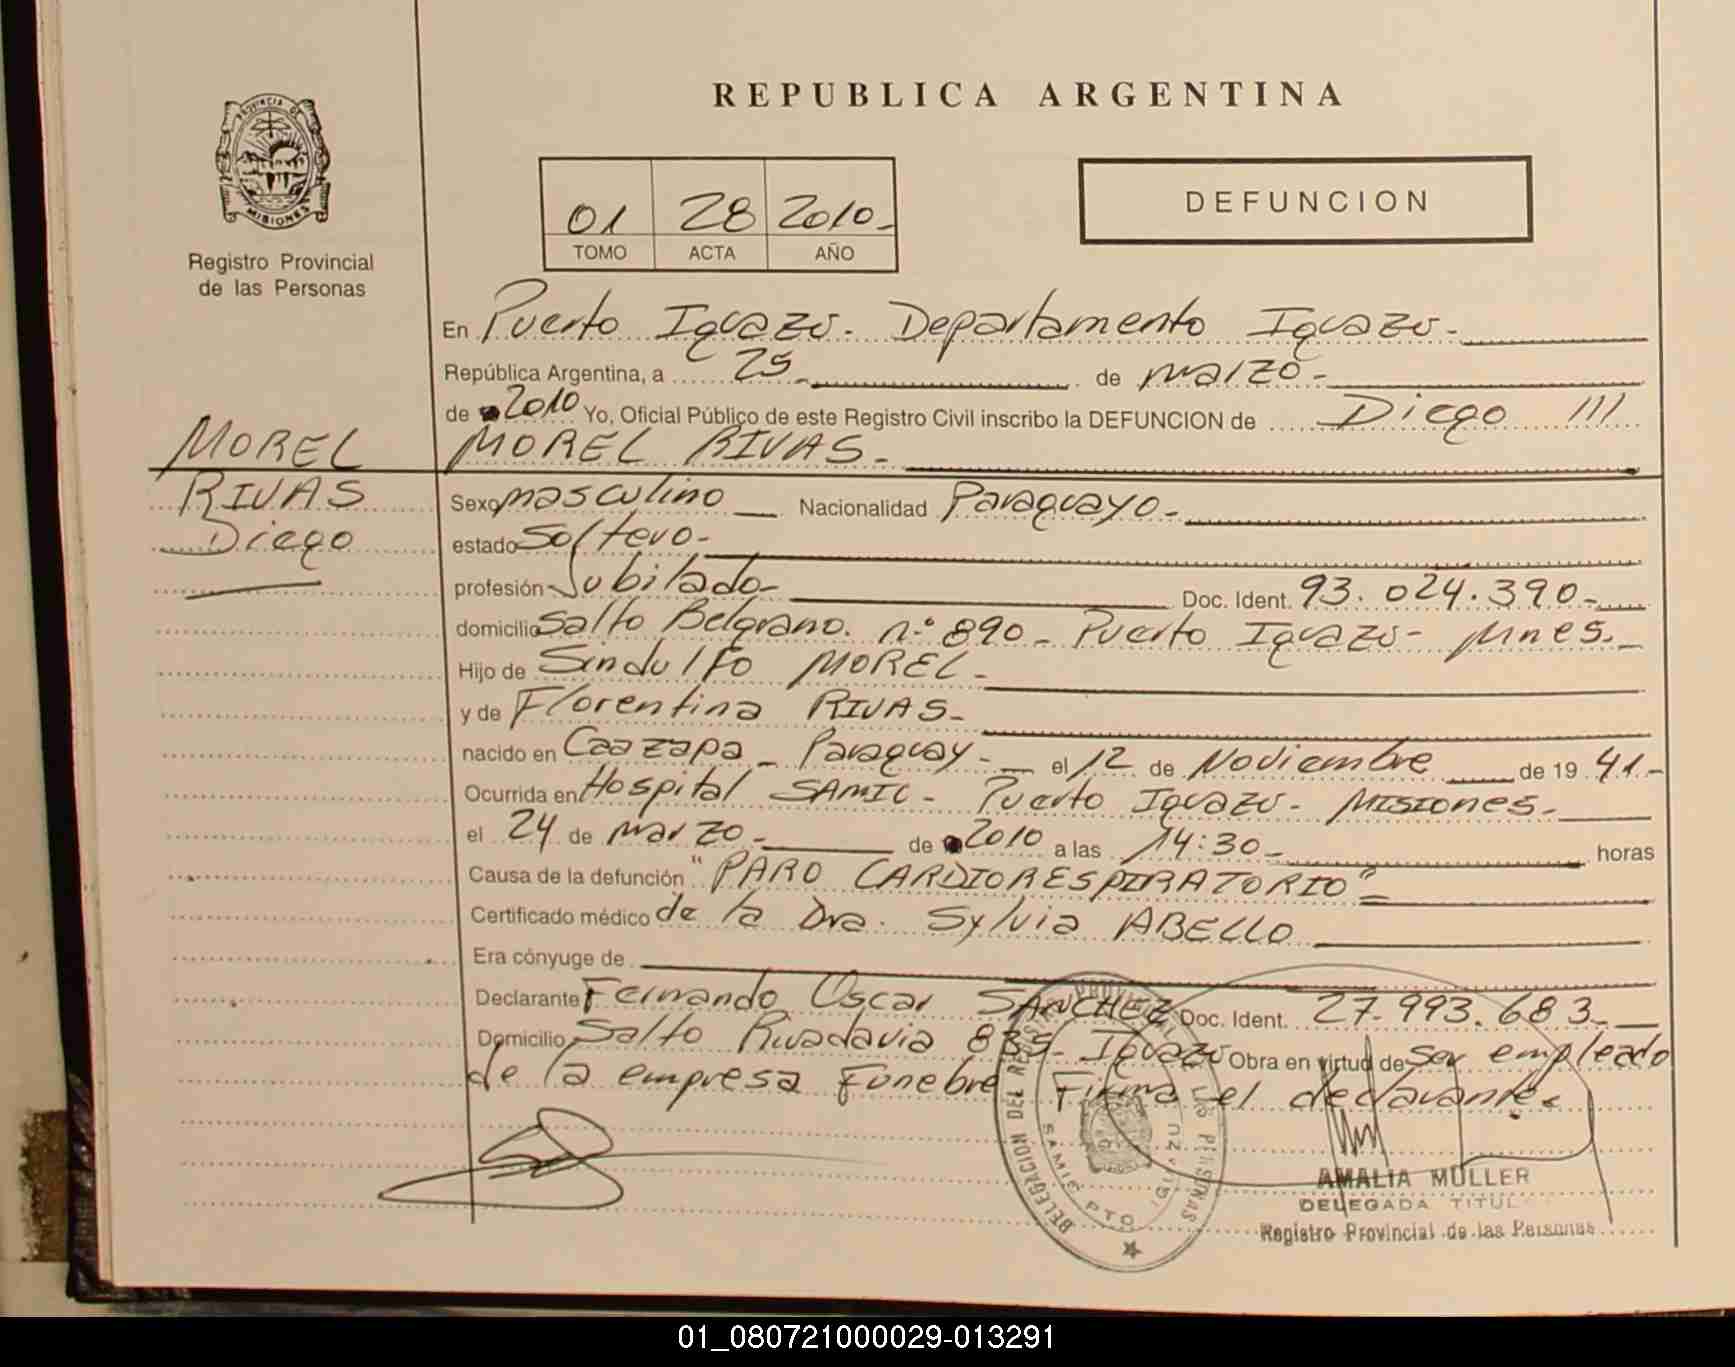 REPUBLICA ARGENTINA
PROVINCIA DE MISIONES
Registro Provincial
de las Personas
01 28 2010-
TOMO ACTA AÑO
DEFUNCION
En Puerto Iguazú- Departamento Iguazú-
República Argentina, a 25- de marzo-
de 2010 Yo, Oficial Público de este Registro Civil inscribo la DEFUNCION de Diego ///
MOREL RIVAS-
MOREL
RIVAS
Diego
Sexo masculino Nacionalidad Paraguayo-
estado Soltero-
profesión Jubilado- Doc. Ident. 93.024.390-
domicilio Salto Belgrano. n.º 890- Puerto Iguazú- Mnes.
Hijo de Sindulfo MOREL-
y de Florentina RIVAS-
nacido en Caazapa- Paraguay- el 12 de Noviembre de 19 41.-
Ocurrida en Hospital SAMIC- Puerto Iguazú- Misiones-
el 24 de marzo- de 2010 a las 14:30- horas
Causa de la defunción "PARO CARDIORESPIRATORIO"=
Certificado médico de la Dra. Sylvia ABELLO
Era cónyuge de
Declarante Fernando Oscar SANCHEZ Doc. Ident. 27.993.683-
Domicilio Salto Rivadavia 835- Iguazú Obra en virtud de ser empleado
de la empresa Funebre Firma el declarante.
DELEGACION DEL REGISTRO PROVINCIAL DE LAS PERSONAS
SAMIC PTO. IGUAZU
AMALIA MULLER
DELEGADA TITUL
Registro Provincial de las Personas
01_080721000029-013291